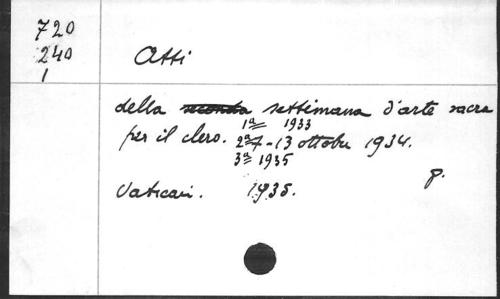 720
240
1
Atti
della seconda settimana d'arte sacra
1ª 1933
per il clero. 2ª 7-13 ottobre 1934.
3ª 1935
p.
Vatican. 1935.